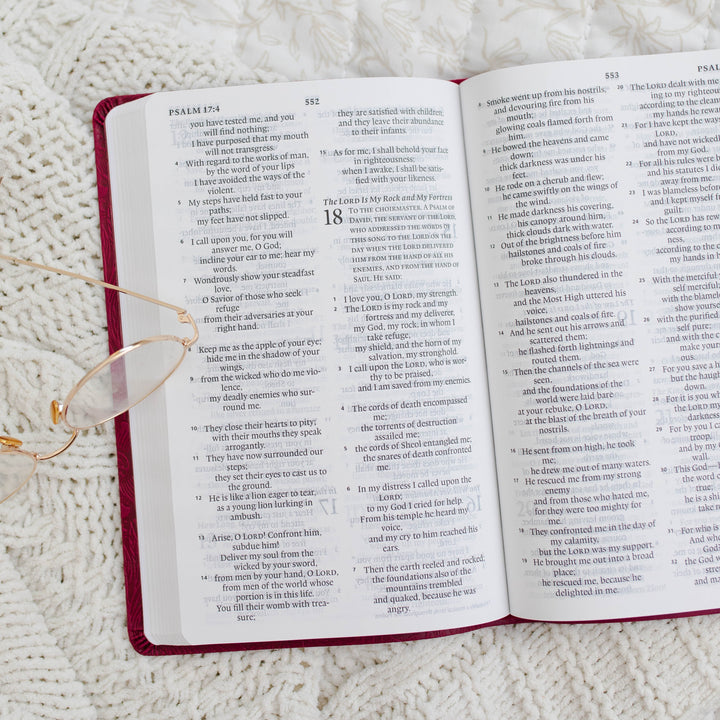 PSALM 17:4
552
you have tested me, and you
will find nothing;
I have purposed that my mouth
will not transgress.
4 With regard to the works of man,
by the word of your lips
I have avoided the ways of the
violent.
5 My steps have held fast to your
paths;
my feet have not slipped.
6 I call upon you, for you will
answer me, O God;
incline your ear to me; hear my
words.
7 Wondrously show your steadfast
love,
O Savior of those who seek
refuge
from their adversaries at your
right hand.
8 Keep me as the apple of your eye;
hide me in the shadow of your
wings,
9 from the wicked who do me vio-
lence,
my deadly enemies who sur-
round me.
10 They close their hearts to pity;
with their mouths they speak
arrogantly.
11 They have now surrounded our
steps;
they set their eyes to cast us to
the ground.
12 He is like a lion eager to tear,
as a young lion lurking in
ambush.
13 Arise, O LORD! Confront him,
subdue him!
Deliver my soul from the
wicked by your sword,
14 from men by your hand, O LORD,
from men of the world whose
portion is in this life.
You fill their womb with trea-
sure;
they are satisfied with children,
and they leave their abundance
to their infants.
15 As for me, I shall behold your face
in righteousness;
when I awake, I shall be satis-
fied with your likeness.
The LORD Is My Rock and My Fortress
18 TO THE CHOIRMASTER. A PSALM OF
DAVID, THE SERVANT OF THE LORD,
WHO ADDRESSED THE WORDS OF
THIS SONG TO THE LORD ON THE
DAY WHEN THE LORD DELIVERED
HIM FROM THE HAND OF ALL HIS
ENEMIES, AND FROM THE HAND OF
SAUL. HE SAID:
1 I love you, O LORD, my strength.
2 The LORD is my rock and my
fortress and my deliverer,
my God, my rock, in whom I
take refuge,
my shield, and the horn of my
salvation, my stronghold.
3 I call upon the LORD, who is wor-
thy to be praised,
and I am saved from my enemies.
4 The cords of death encompassed
me;
the torrents of destruction
assailed me;
5 the cords of Sheol entangled me;
the snares of death confronted
me.
6 In my distress I called upon the
LORD;
to my God I cried for help.
From his temple he heard my
voice,
and my cry to him reached his
ears.
7 Then the earth reeled and rocked;
the foundations also of the
mountains trembled
and quaked, because he was
angry.
553
8 Smoke went up from his nostrils,
and devouring fire from his
mouth;
glowing coals flamed forth from
him.
9 He bowed the heavens and came
down;
thick darkness was under his
feet.
10 He rode on a cherub and flew;
he came swiftly on the wings of
the wind.
11 He made darkness his covering,
his canopy around him,
thick clouds dark with water.
12 Out of the brightness before him
hailstones and coals of fire
broke through his clouds.
13 The LORD also thundered in the
heavens,
and the Most High uttered his
voice,
hailstones and coals of fire.
14 And he sent out his arrows and
scattered them;
he flashed forth lightnings and
routed them.
15 Then the channels of the sea were
seen,
and the foundations of the
world were laid bare
at your rebuke, O LORD,
at the blast of the breath of your
nostrils.
16 He sent from on high, he took
me;
he drew me out of many waters.
17 He rescued me from my strong
enemy
and from those who hated me,
for they were too mighty for
me.
18 They confronted me in the day of
my calamity,
but the LORD was my support.
19 He brought me out into a broad
place;
he rescued me, because he
delighted in me.
PSAL
20 The LORD dealt with me
ing to my righteous
according to the clean
my hands he rewar
21 For I have kept the way
LORD,
and have not wicked
from my God.
22 For all his rules were b
and his statutes I di
away from me.
23 I was blameless before
and I kept myself
guilt.
24 So the LORD has rewa
according to m
ness,
according to the cl
my hands in
25 With the merciful
self merciful;
with the blame
show yourse
26 with the purified
self pure;
and with the c
make yours
ous.
27 For you save a h
but the haugh
down.
28 For it is you wh
the LORD my
darkness.
29 For by you I ca
and by my G
wall.
30 This God—h
the word o
true;
he is a shie
take re
31 For who is
And who
God
32 the God w
streng
and ma